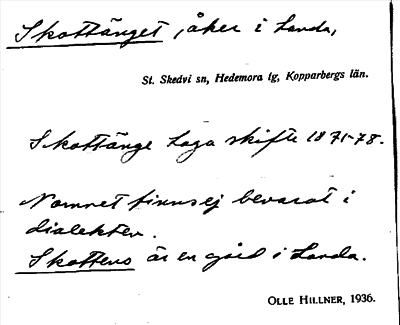 Skottänget, åker i Landa,
St. Skedvi sn, Hedemora tg, Kopparbergs län.
Skottänge Laga skifte 1871-78.
Namnet finns ej bevarat i
dialekten.
Skottens är en gård i Landa.
OLLE HILLNER, 1936.